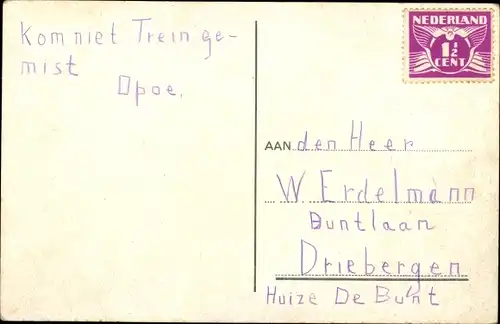 Kom niet Trein ge-
mist
Opoe.
NEDERLAND
1½
CENT
AAN den Heer
W. Erdelmann
Buntlaan
Driebergen
Huize De Bunt